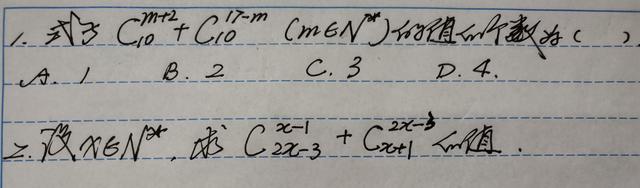 1. 式子 C₁₀^{m+2} + C₁₀^{17-m} (m∈N*)的值的个数为( ).
A. 1 B. 2 C. 3 D. 4.
2. 设x∈N*, 求 C_{2x-3}^{x-1} + C_{x+1}^{2x-3} 的值.